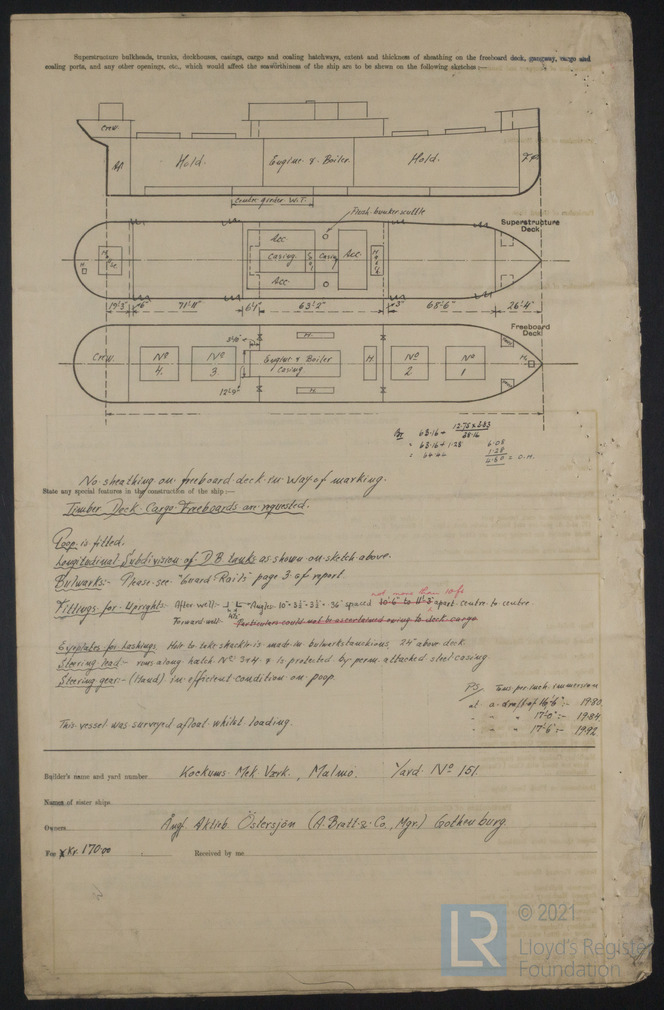 Superstructure bulkheads, trunks, deckhouses, casings, cargo and coaling hatchways, extent and thickness of sheathing on the freeboard deck, gangway, cargo and
coaling ports, and any other openings, etc., which would affect the seaworthiness of the ship are to be shewn on the following sketches :—
Crew.
Hold.
Engine & Boiler.
Hold.
Center girder W.T.
Flush bunker scuttle
Superstructure
Deck
Acc.
Casing
Casing
Acc.
Acc.
19'-3"
71'-11"
6'-1"
63'-2"
68'-6"
26'-4"
Freeboard
Deck
Crew.
No 4.
No 3.
Engine & Boiler
Casing
H.
No 2
No 1
H.
H.
H.
12'-9"
63.16 +
= 63.16 + 1.28
6.08
1.28
No sheathing on freeboard deck in way of marking.
State any special features in the construction of the ship :—
Timber Deck Cargo Freeboards are requested.
Poop is fitted.
Longitudinal Subdivision of D B tanks as shown on sketch above.
Bulwarks:- Please see "Guard Rails" page 3 of report.
not more than 10 ft
Fittings for Uprights:- After well:- Angles 10" 3½" 3½" .36" spaced 10'-6" to 11'-3" apart centre to centre.
Forward well:- Particulars could not be ascertained owing to deck cargo
Eyeplates for Lashings. Hole to take shackle is made in bulwarkstanchions, 24" above deck.
Steering lead:- runs along hatch No 3&4 & is protected by perm. attached steel casing.
Steering gear:- (Hand) in efficient condition on poop.
PS/ Tons per inch immersion
at a draft of 16'-6" :- 19.80
" " " 17'-0" :- 19.84
" " " 17'-6" :- 19.92
This vessel was surveyed afloat whilst loading.
Builder's name and yard number Kockums Mek Værk., Malmö. Yard No 151.
Names of sister ships
Owners Ångf. Aktieb. Östersjön (A. Bratt & Co., Mgr.) Gothenburg.
Fee Kr. 170.00 : Received by me
© 2021
LR
Lloyd's Register
Foundation